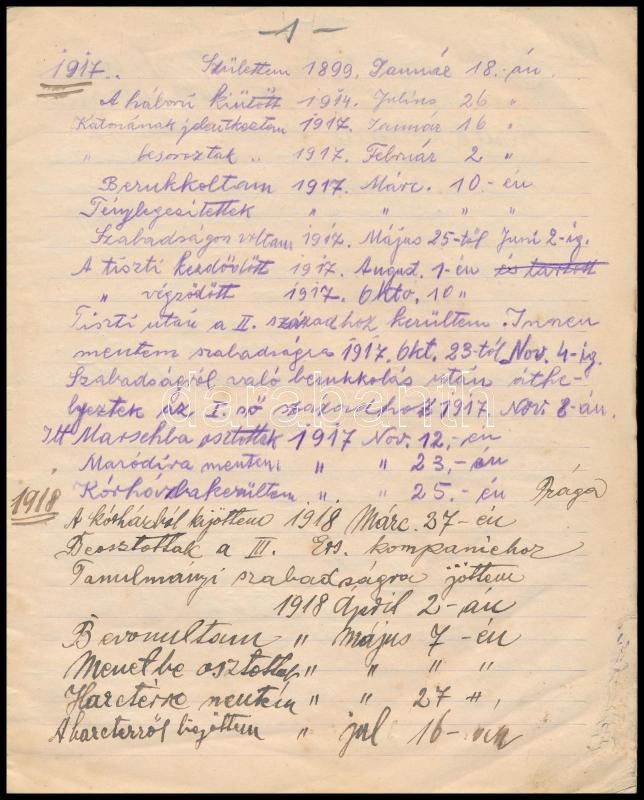 -1-
1917.. Születtem 1899. Január 18.-án.
A háború kiütött 1914. Julius 26 "
Katonának jelentkeztem 1917. Január 16 "
" besoroztak .. 1917. Február 2 "
Berukkoltam 1917. Márc. 10.-én
Ténylegesítettek " " " "
Szabadságon voltam 1917. Május 25-től Juni 2-ig.
A tiszti kezdődött 1917. August. 1-én és tartott
" végződött 1917. Okto. 10 "
Tiszti után a II. századhoz kerültem. Innen
mentem szabadságra 1917. Okt. 23-tól Nov. 4-ig.
Szabadságról való berukkolás után áthe-
lyeztek az I. ső századhoz 1917. Nov. 8-án.
Itt Marschba osztottak 1917 Nov. 12.-én
Maródira mentem " " 23,-án
Kórházba kerültem " " 25.-én Prága
1918 A kórházból kijöttem 1918 Márc. 27-én
Beosztottak a III. Ers. kompaniehoz
Tanulmányi szabadságra jöttem
1918 Április 2-án
Bevonultam " Május 7-én
Menetbe osztottak " " " "
Harctérre mentem " " 27 ",
A harctérről kijöttem " jul 16-án
darabanth